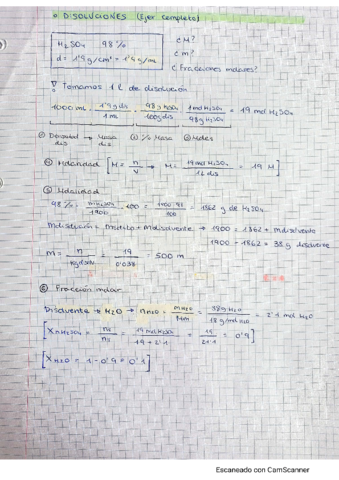 o DISOLUCIONES (Ejer completo)
H₂SO₄ 98%
d = 1'9 g/cm³ = 1'9 g/mL
¿M?
¿m?
¿Fracciones molares?
Tomamos 1 l de disolución
1000 mL · 1'9 g dis / 1 mL · 98 g H₂SO₄ / 100 g dis · 1 mol H₂SO₄ / 98 g H₂SO₄ = 19 mol H₂SO₄
Densidad dis → Masa dis % Masa Moles
Molaridad [M = n/V → M = 19 mol H₂SO₄ / 1 L dis = 19 M]
Molalidad
98% = mH₂SO₄ / 1900 · 100 = 1900·98 / 100 = 1862 g de H₂SO₄
mdisolución = msoluto + mdisolvente → 1900 = 1862 + mdisolvente
1900 - 1862 = 38 g disolvente
m = n / kg disolv = 19 / 0'038 = 500 m
Fracción molar
Disolvente → H₂O → nH₂O = mH₂O / Mm = 38 g H₂O / 18 g/mol H₂O = 2'1 mol H₂O
[XH₂SO₄ = = 19 mol H₂SO₄ / 19 + 2'1 = / 21'1 = 0'9]
[XH₂O = 1 - 0'9 = 0'1]
Escaneado con CamScanner